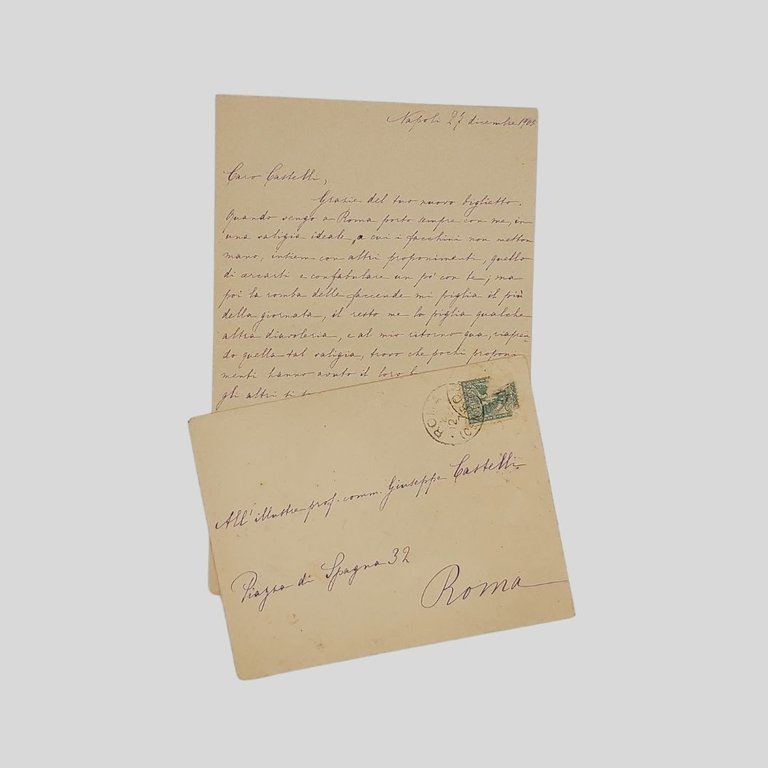 Napoli 27 dicembre 1905
Caro Castelli,
Grazie del tuo nuovo biglietto.
Quando vengo a Roma porto sempre con me, in
una valigia ideale, a cui i facchini non metton
mano, insiem con altri proponimenti, quello
di cercarti e confabulare un po' con te; ma
poi la romba delle faccende mi piglia il più
della giornata, il resto me lo piglia qualche
altra diavoleria, e al mio ritorno qua, riapren
do quella tal valigia, trovo che pochi proponi
menti hanno avuto il loro
gli altri
ROMA
12
All'illustre prof. comm. Giuseppe Castelli
Piazza di Spagna 32
Roma